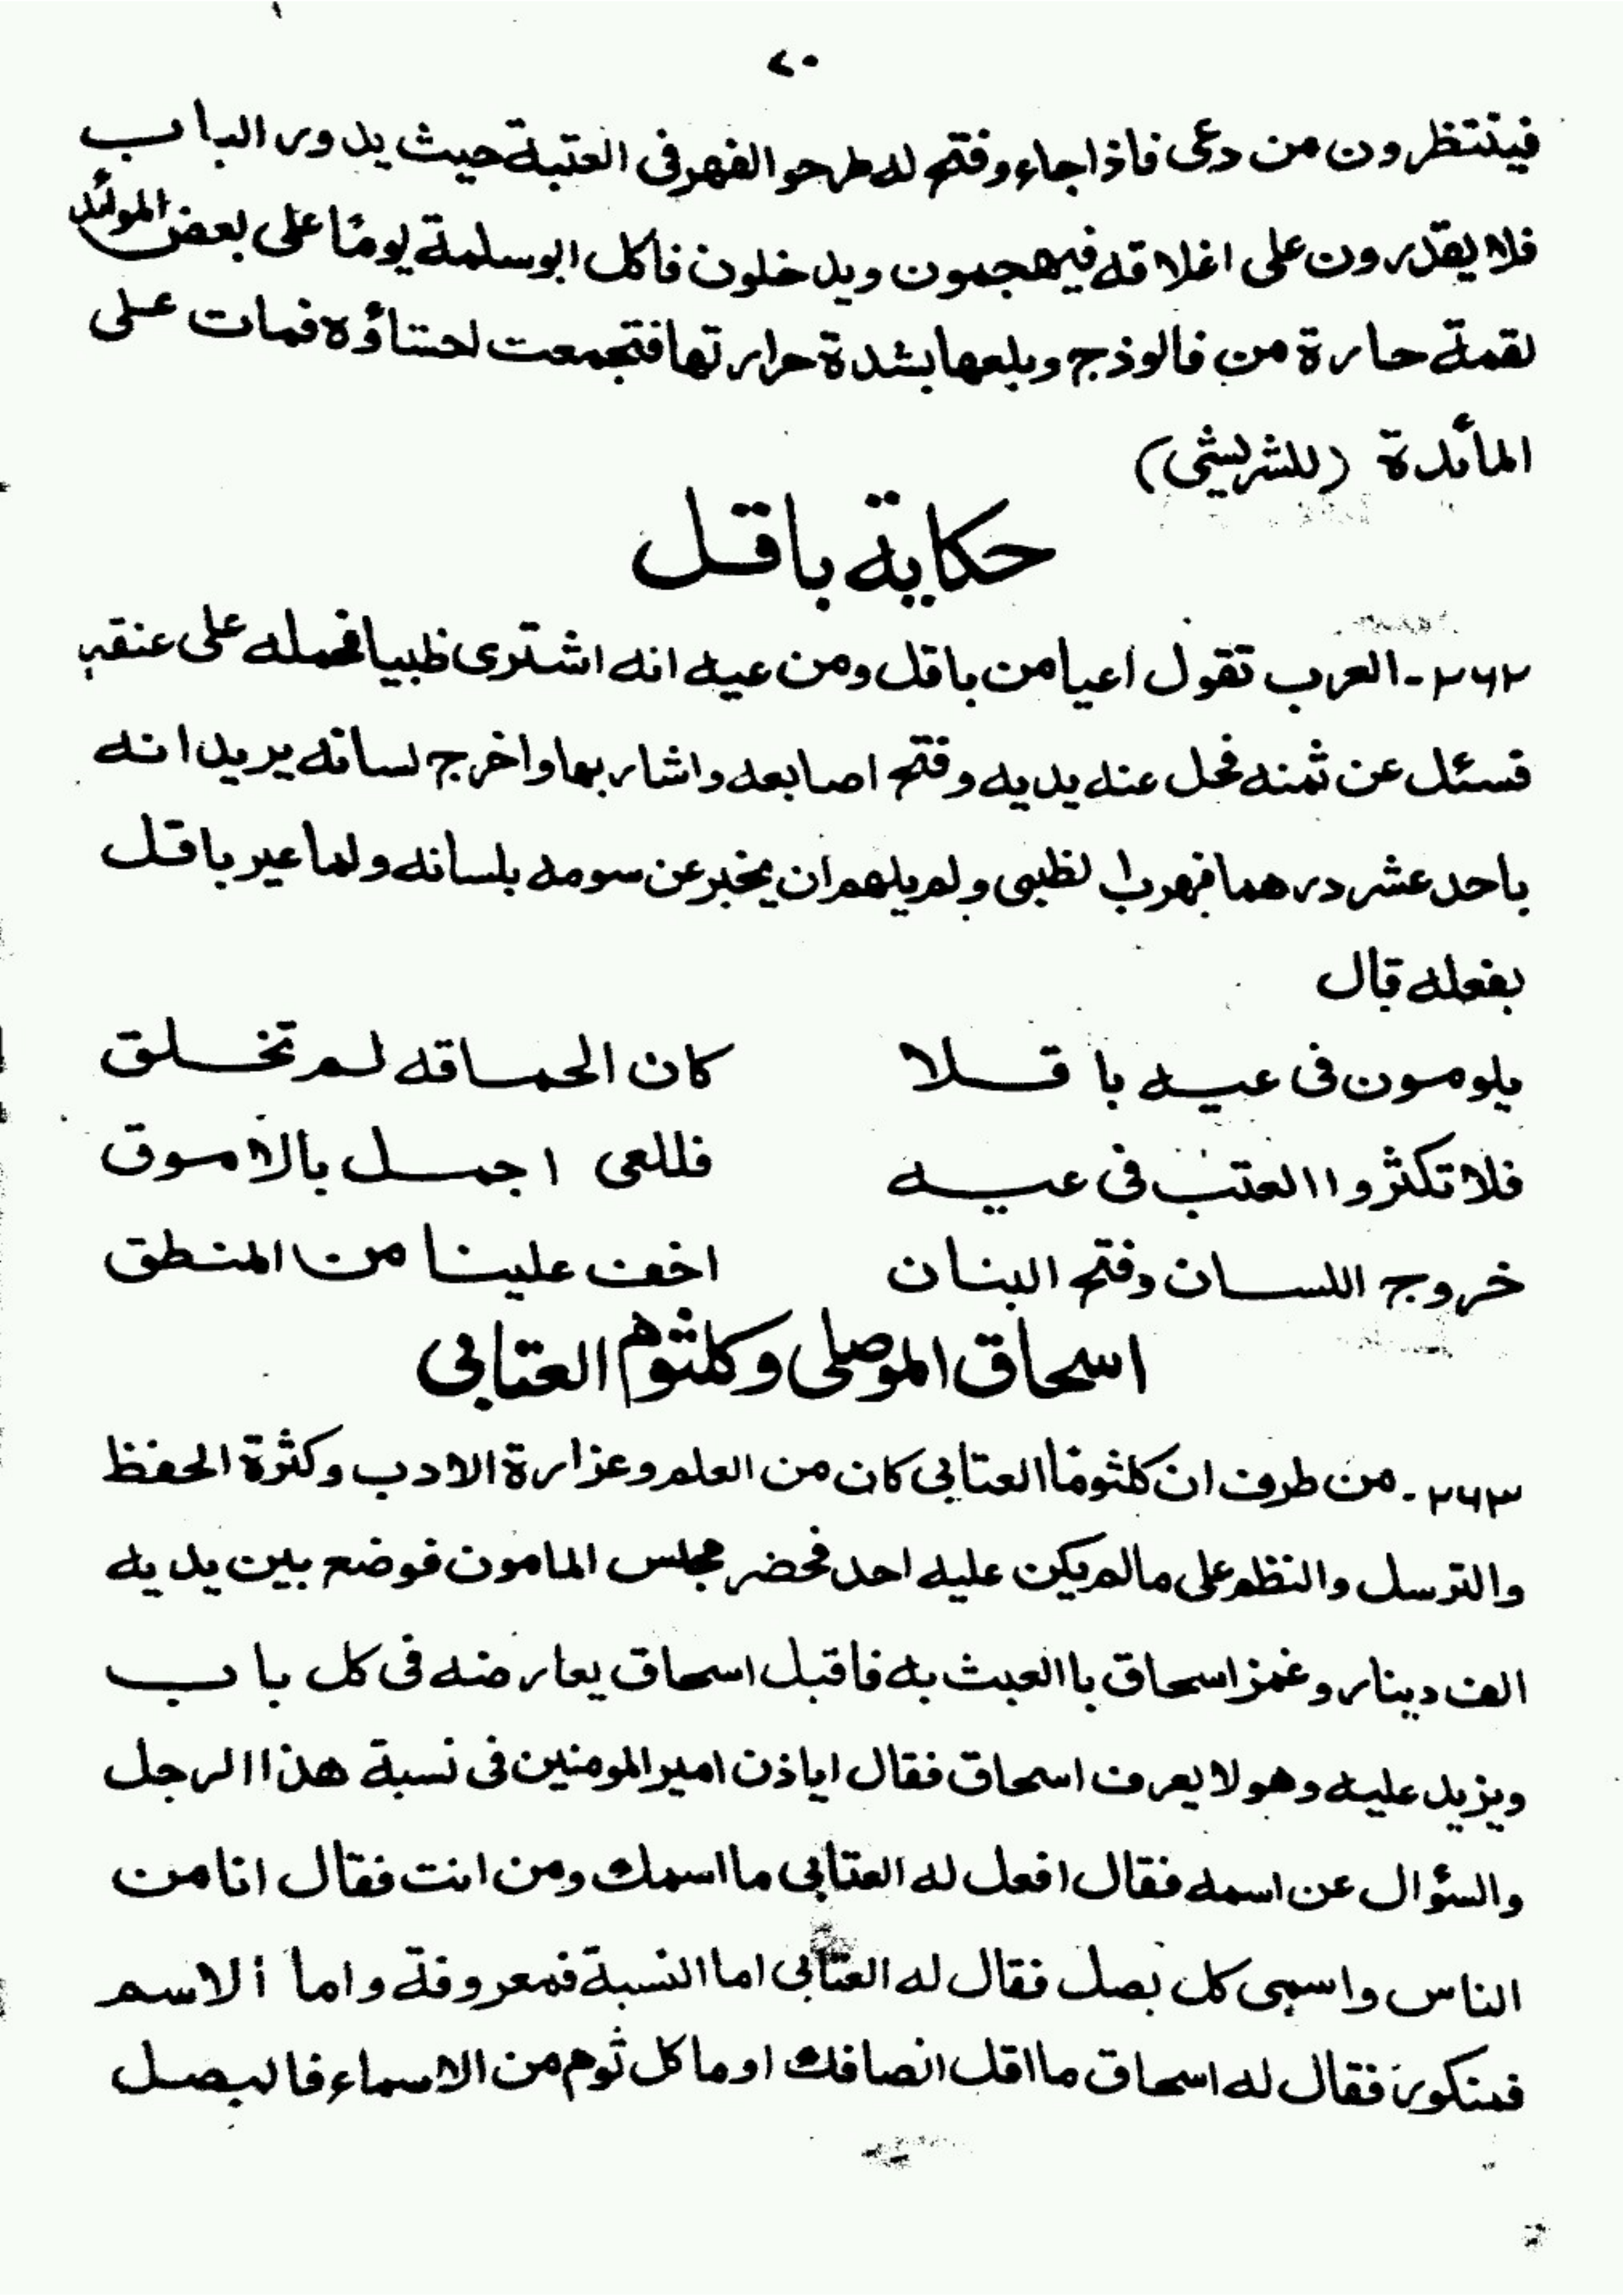 ٧٠
فينتظرون من دعى فاذا جاء وفتح له طرحوا الفهر فى العتبة حيث يدور الباب
فلا يقدرون على اغلاقه فيهجمون ويدخلون فاكل ابو سلمة يومًا على بعض الموائد
لقمة حارة من فالوذج وبلعها بشدة حرارتها فتجمعت احشاؤه فمات على
المائدة (للشريشى)
حكاية باقل
٢٦٢ـ العرب تقول اعيا من باقل ومن عيه انه اشترى ظبيا فحمله على عنقه
فسئل عن ثمنه فحل عنه يديه وفتح اصابعه واشار بها واخرج لسانه يريد انه
باحد عشر درهما فهرب الظبى ولم يلهم ان يخبر عن سومه بلسانه ولما عير باقل
بفعله قال
يلومون فى عيه باقلا كان الحماقه لم تخلق
فلا تكثروا العتب فى عيه فللعى اجمل بالاموق
خروج اللسان وفتح البنان اخف علينا من المنطق
اسحاق الموصلى وكلثوم العتابى
٢٦٣ـ من طرف ان كلثومًا العتابى كان من العلم وعزارة الادب وكثرة الحفظ
والترسل والنظم على مالم يكن عليه احد فحضر مجلس المامون فوضع بين يديه
الف دينار وغمز اسحاق باالعبث به فاقبل اسحاق يعارضه فى كل باب
ويزيد عليه وهو لا يعرف اسحاق فقال اياذن امير المومنين فى نسبة هذا الرجل
والسؤال عن اسمه فقال افعل له العتابى ما اسمك ومن انت فقال انا من
الناس واسمى كل بصل فقال له العتابى اما النسبة فمعروفة واما الاسم
فمنكور فقال له اسحاق ما اقل انصافك اوما كل ثوم من الاسماء فالبصل